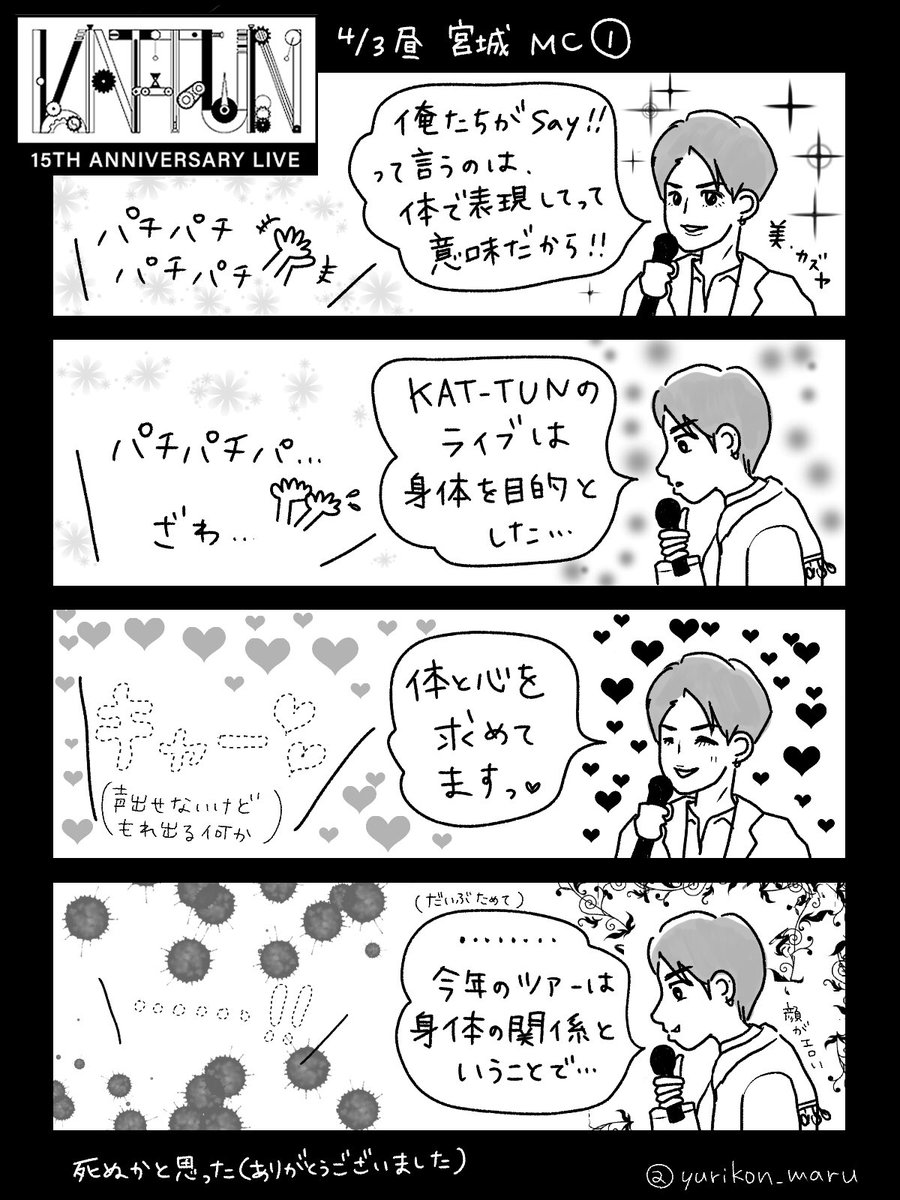 KAT-TUN
15TH ANNIVERSARY LIVE
4/3昼 宮城 MC①
俺たちがSay!!
って言うのは、
体で表現してって
意味だから!!
美・カズヤ
パチパチ
パチパチ
KAT-TUNの
ライブは
身体を目的と
した…
パチパチパ…
ざわ…
体と心を
求めて
ますっ♥
キャー♡♡
(声出せないけど
もれ出る何か)
(だいぶためて)
‥‥‥‥
今年のツアーは
身体の関係と
いうことで…
顔がエロい
……!!
死ぬかと思った(ありがとうございました)
@yurikon_maru